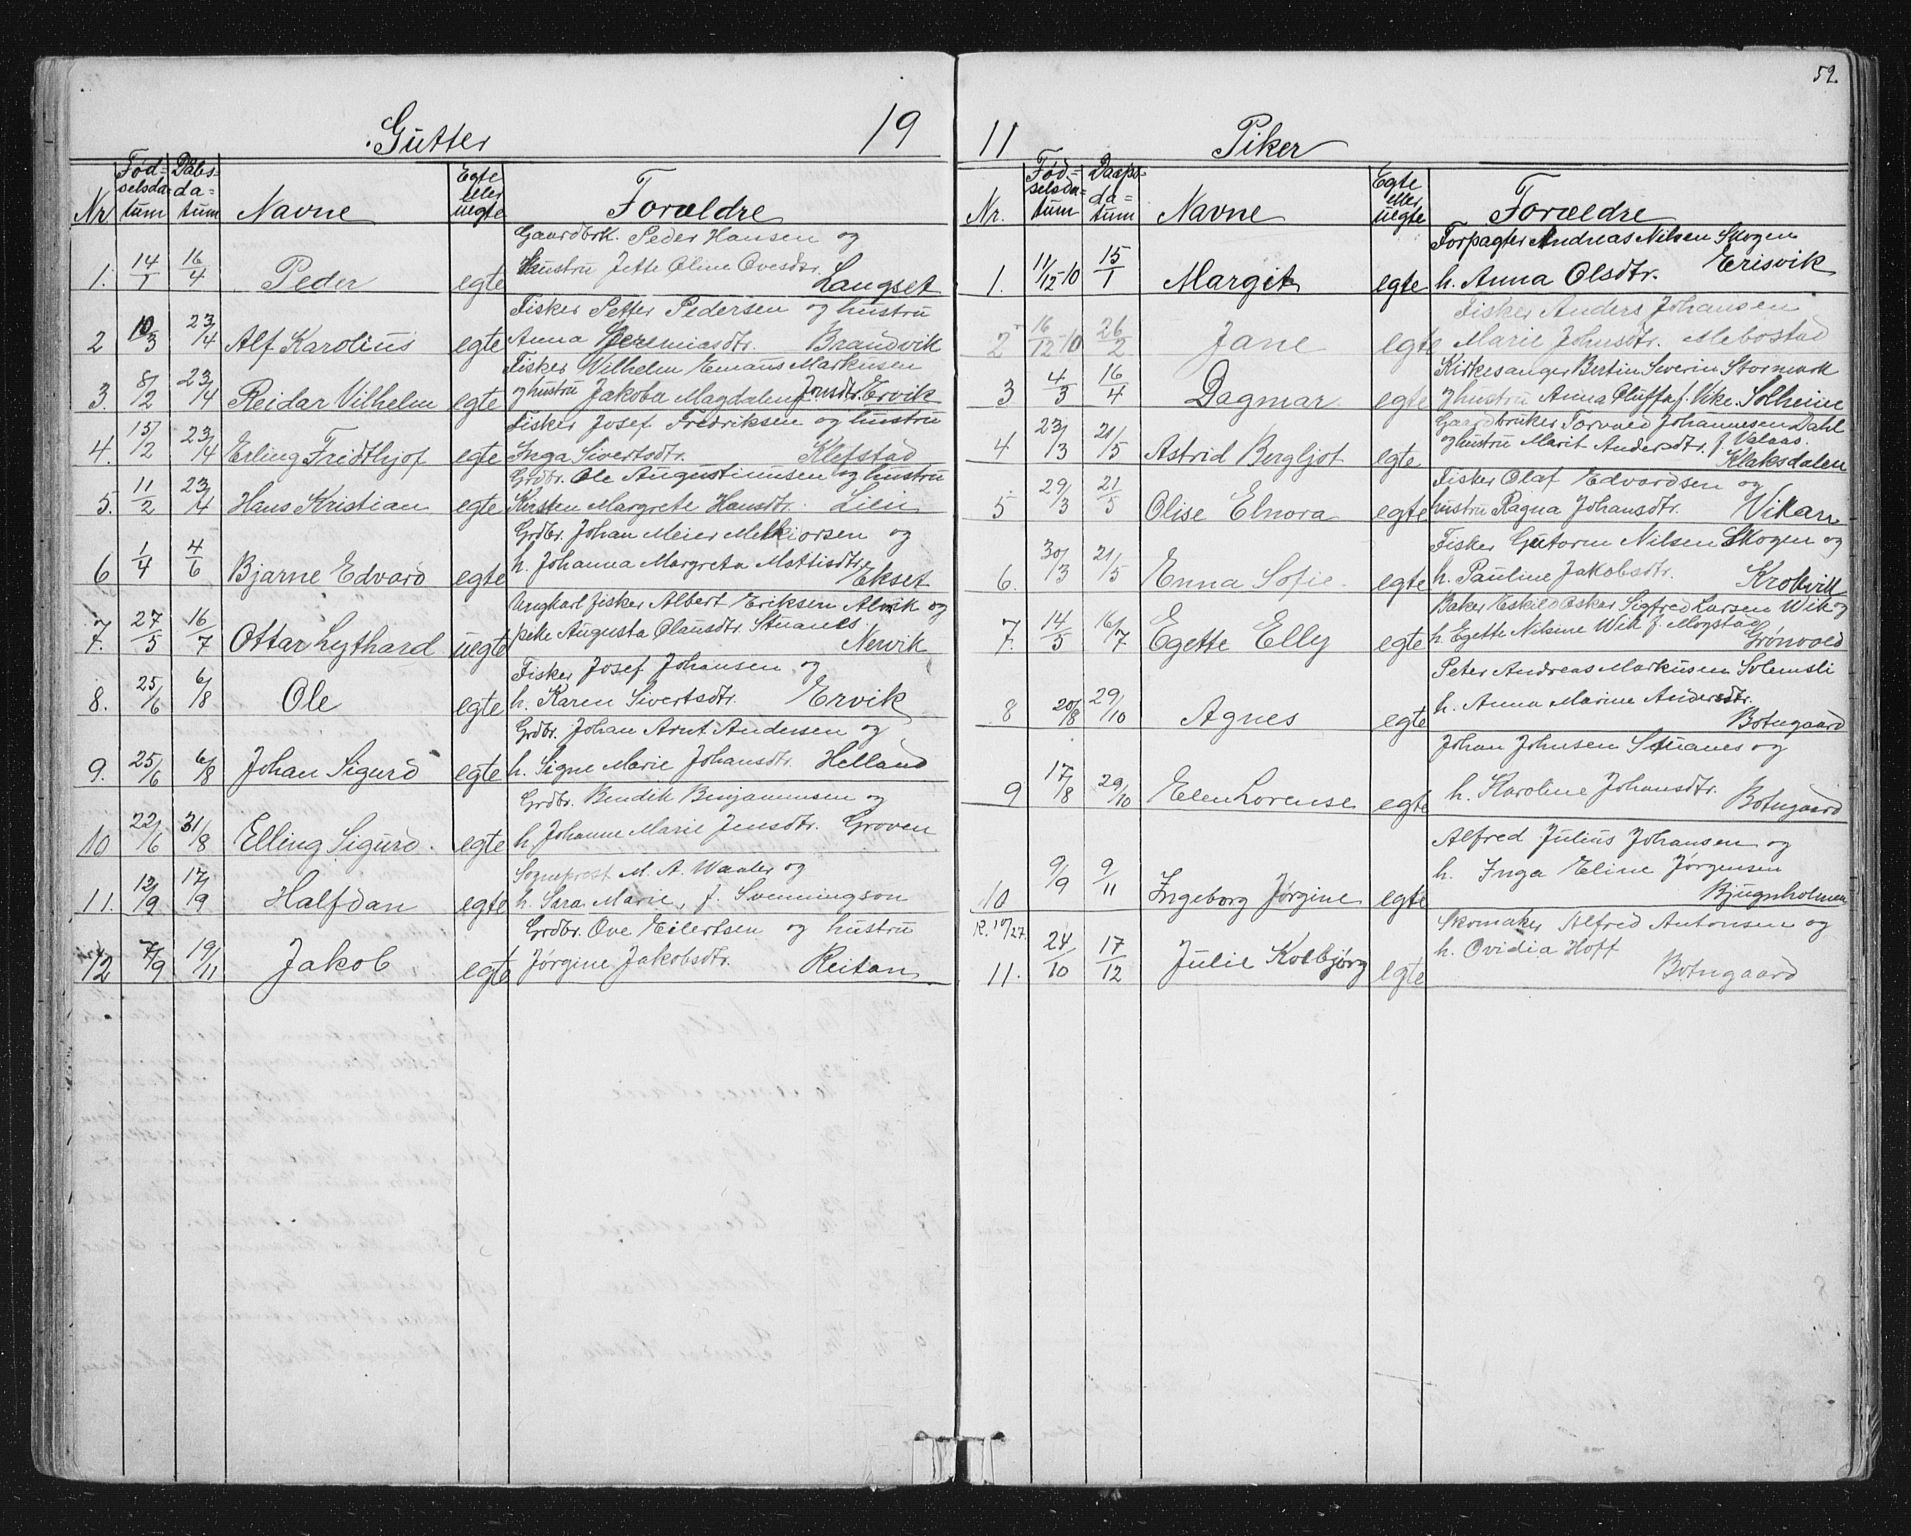 Gutter 19
Nr. Fødselsdatum Dåbsdatum Navne Egte eller uegte Forældre
Gaardbrk. Peder Hansen og
1. 14/1 16/4 Peder egte hustru Jette Oline Ovesdtr. Langset
Fisker Petter Pedersen og hustru
2 10/3 23/4 Alf Karolius egte Anna Jeremiasdtr. Brandvik
Fisker Vilhelm Emaus Markusen
3. 8/2 23/4 Reidar Vilhelm egte og hustru Jakoba Magdalena Jonsdtr. Ervik
Fisker Josef Fredriksen og hustru
4. 15/2 23/4 Erling Fridthjof egte Inga Sivertsdtr. Klefstad
Grdbr. Ole Augustinusen og hustru
5. 11/2 23/4 Hans Kristian egte Kirsten Margrete Hansdtr. Lein
Grdbr. Johan Meier Melkiorsen og
6 1/4 4/6 Bjarne Edvard egte h. Johanna Margreta Mathisdtr. Ekset
Ungkarl fisker Albert Eriksen Alvik og
7. 27/5 16/7 Ottar Lythard uegte pike Augusta Olausdtr. Stuanes Nervik
Fisker Josef Johansen og
8. 25/6 6/8 Ole egte h. Karen Sivertsdtr. Ervik
Grdbr. Johan Arnt Andersen og
9. 25/6 6/8 Johan Sigurd egte h. Signe Marie Johansdtr. Helland
Grdbr. Bendik Benjaminsen og
10 22/6 31/8 Elling Sigurd. egte h. Johanne Marie Jensdtr. Groven
Sogneprest M. A. Waaler og
11. 12/9 17/9 Halfdan egte h. Sara Marie, f. Svenningson
Grdbr. Ove Eilertsen og hustru
12 7/9 19/11 Jakob egte Jørgine Jakobsdtr. Reitan
52.
11 Piker
Nr. Fødselsdatum Daapsdatum Navne Egte eller uegte Forældre
Forpagter Andreas Nilsen Skogen
1. 11/12-10 15/1 Margit egte h. Anna Olsdtr. Erisvik
Fisker Anders Johansen
2 16/12-10 26/2 Jane egte Marie Johnsdtr. Mebostad
Kirkesanger Bertin Severin Stormark
3 4/3 16/4 Dagmar egte hustru Anna Oluffa f. Vike. Solheim
Gaardbruker Torvald Johannesen Dahl
4 23/3 21/5 Astrid Bergljot egte og hustru Marit Andersdtr. f. Valaas. Klaksdalen
Fisker Olaf Edvardsen og
5 29/3 21/5 Olise Elnora egte hustru Ragna Johansdtr. Vikan
Fisker Gutorm Nilsen Skogen og
6. 30/3 21/5 Enna Sofie egte h. Pauline Jakobsdtr. Krokvik
Baker Eskild Oskar Sigfred Larsen Wik og
7. 14/5 16/7 Egette Elly egte h. Egette Nilsine Wik f. Mogstad Grønvold
Peter Andreas Markusen Solemsli
8 20/8 29/10 Agnes egte h. Anna Marine Andersdtr. Botngaard
Johan Johnsen Stuanes og
9 17/8 29/10 Elen Lorense egte h. Karoline Johansdtr. Botngaard
Alfred Julius Johansen og
10 9/9 9/11 Ingeborg Jørgine egte h. Inga Eline Jørgensen Bjugnholmen
Skomaker Alfred Antonsen og
11. 24/10 17/12 Julie Kolbjørg egte h. Ovidia Hoff Botngaard